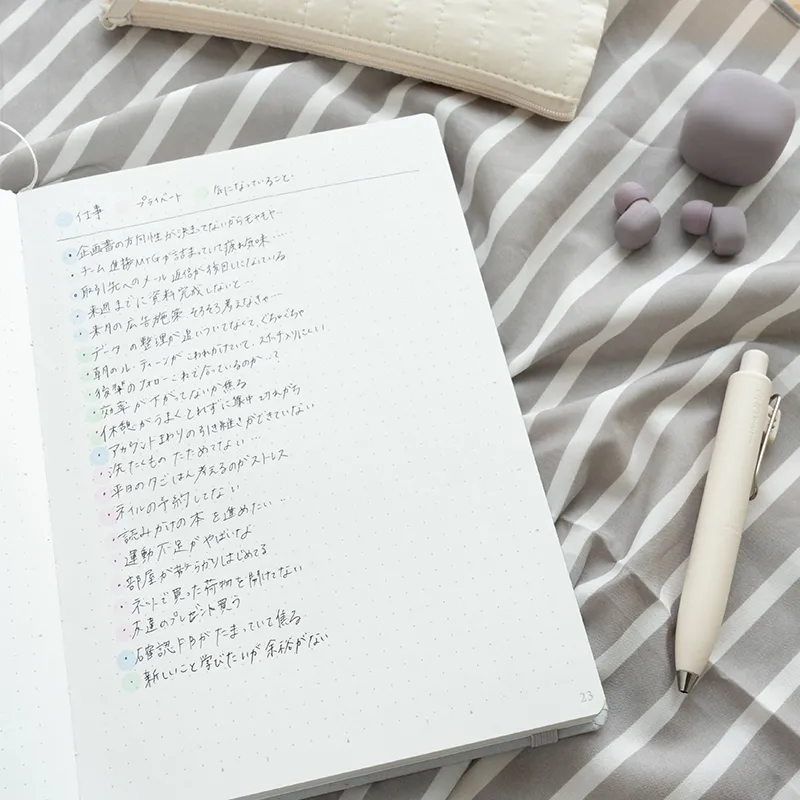 仕事 プライベート 気になっていること
・企画書の方向性が決まってないからモヤモヤ…
・チーム進捗MTGが詰まっていて疲れ気味……
・取引先へのメール返信が後回しになっている
・来週までに資料完成しないと…
・来月の広告施策そろそろ考えなきゃ…
・データの整理が追いついてなくて、ぐちゃぐちゃ
・朝のルーティーンがこわれかけていて、スイッチ入りにくい
・後輩のフォローこれで合っているのか…?
・効率が下がってないか焦る
・休憩がうまくとれずに集中切れがち
・アカウントまわりの引き継ぎができていない
・洗たくものたためてない…
・平日の夕ごはん考えるのがストレス
・ネイルの予約してない
・読みかけの本を進めたい…
・運動不足がやばいな
・部屋が散らかりはじめてる
・ネットで買った荷物を開けてない
・友達のプレゼント買う
・確認FBがたまっていて焦る
・新しいこと学びたいが余裕がない
23